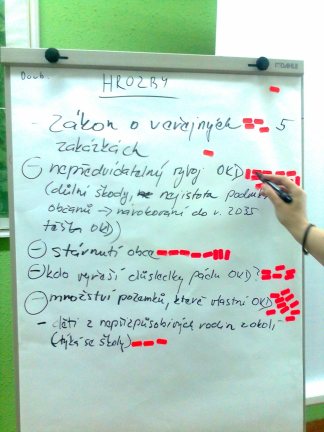 Doub.
HROZBY
- zákon o veřejných 5
zakázkách
- nepředvídatelný vývoj OKD
(důlní škody, nejistota
občanů → nárokování do r. 2035
OKD)
- stárnutí obce
- kdo vyřeší důsledky pádu OKD?
- množství pozemků, které vlastní OKD
- děti z nepřizpůsobivých rodin z okolí
(týká se školy)